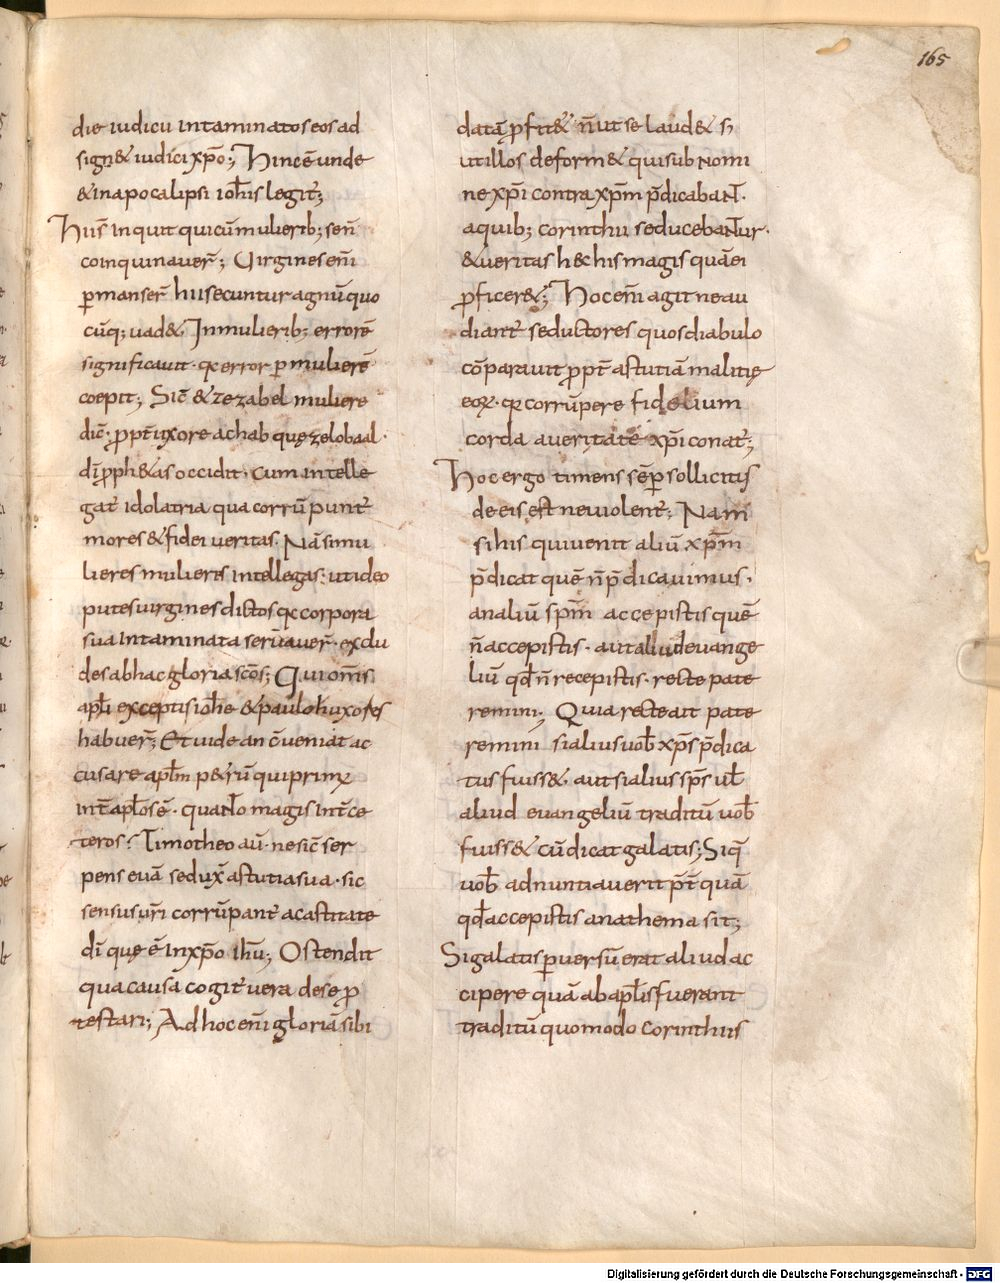 165
die iudicii intaminatos eos ad
sign& iudici xp̄o; Hinc ē unde
& in apocalipsi ioh̄is legit̄;
Hii s̄ inquit qui cū mulierib; sen̄
coinquinaver̄; Virgines eni̅
p̱manser̄ hii secuntur agnū quo
cūq; uad&; In mulierib; errorē
significavit · qđ error p̱ mulierē
coepit; Sic̄ & zezabel muliere
dic̄ · ꝓpt̄ uxore achab quę zelo baal ·
dī ꝓph&as occidit · cum intelle
gat̄ idolatria qua corrūpunt̄
mores & fidei veritas. Nā si mu
lieres mulieres intellegas: ut ideo
putes uirgines dictos qđ corpora
sua intaminata seruaver̄ · exclu
des ab hac gloria scōs; Qui om̄s
apl̄i exceptis ioh̄e & paulo huxores
habuer̄; Et uide an cūeniat ac
cusare apl̄m p&rū qui primꝰ
int̄ apl̄os ē · quanto magis int̄ ce
teros? Timotheo aū · ne sic̄ ser
pens evā sedux̄ astutia sua · sic
sensus ur̄i corrūpant̄ a castitate
dī quę ē in xp̄o ihū; Ostendit
qua causa cogit̄ vera de se ꝓ
testari; Ad hoc eni̅ gloriā sibi
datā ꝓfit&̄ n̄ ut se laud& s;
ut illos deform& qui sub nomi
ne xp̄i contra xp̄m p̄dicabaNT.
a quib; corinthii seducebaNTur ·
& veritas h& his magis quā ei
ꝓficer&; Hoc eni̅ agit ne au
diant̄ seductores quos diabulo
cōparavit ꝓpt̄ astutiā malitię
eoꝝ · qđ corrūpere fidelium
corda a veritate xp̄i conat̄;
Hoc ergo timens sēp̱ sollicitꝰ
de eis est ne violent̄; Nam
si his qui venit aliū xp̄m
p̄dicat quē n̄ p̄dicavimus ·
an aliū sp̄m accepistis quē
n̄ accepistis · aut aliud evange
liū qđ n̄ recepistis · recte pate
remini; Quia recte ait pate
remini si alius uob̄ xp̄s p̄dica
tus fuiss& · aut si alius sp̄s vl̄
aliud evangeliū traditū uob̄
fuiss& cū dicat galatis; Siq̄
uob̄ adnuntiaverit p̄t̄ quā
qđ accepistis anathema sit;
Si galatis p̱versū erat aliud ac
cipere quā ab apl̄is fuerant
traditū quomodo corinthiis
Digitalisierung gefördert durch die Deutsche Forschungsgemeinschaft - DFG